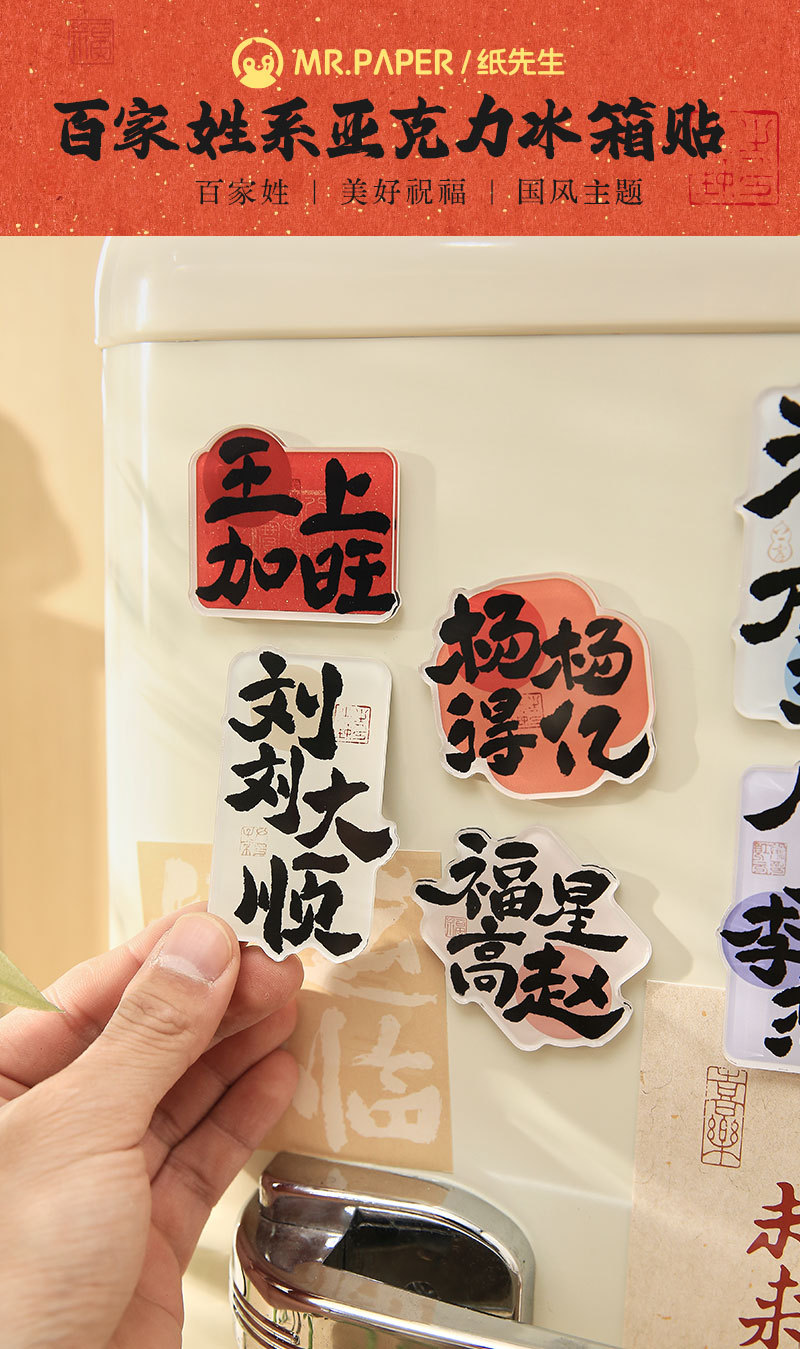 MR.PAPER/纸先生
百家姓系亚克力冰箱贴
百家姓 | 美好祝福 | 国风主题
王上
加旺
杨杨
得亿
刘
刘大
顺
福星
高赵
李
临
喜樂
未来